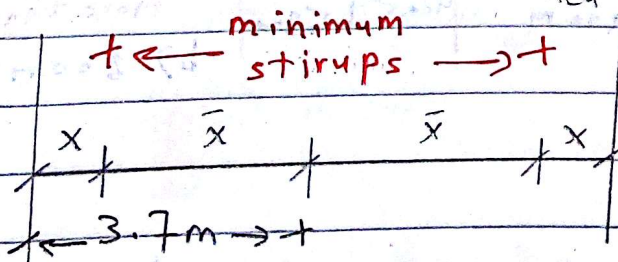 minimum
stirups
x x̄ x̄ x
3.7m